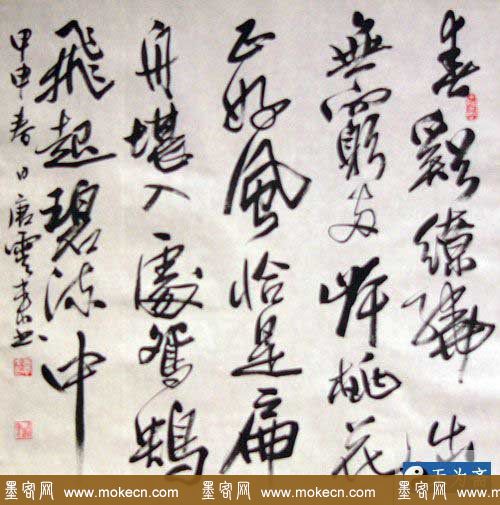 春谿繚繞出
無窮兩岸桃花
正好風恰是扁
舟堪入處鴛鴦
飛起碧流中
甲申春日唐雲来书
墨客网 www.mokecn.com 墨客网 www.mokecn.com 墨客网 www.mokecn.com